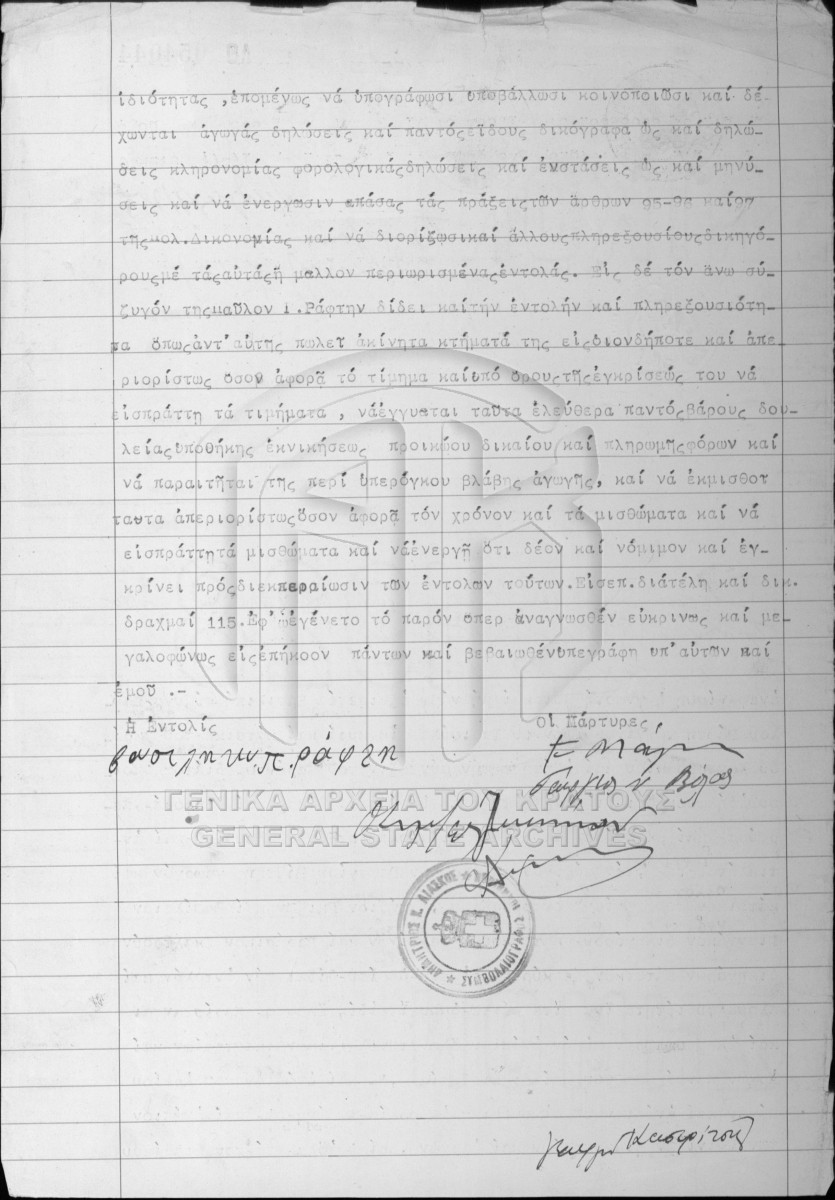 ἰδιότητας ,ἑπομέγως νά ὑπογράφωσι ὑποβάλλωσι κοινοποιῶσι καί δέ-
χωνται ἀγωγάς δηλώσεις καί παντόςεἴδους δικόγραφα ὡς καί δηλώ-
σεις κληρονομίας φορολογικάςδηλώσεις καί ἐνστάσεις ὡς καί μηνύ-
σεις καί νά ἐνεργῶσιν ἁπάσας τάς πράξειςτῶν ἄρθρων 95-98 καί97
τῆςπολ.Δικονομίας καί νά διορίζωσικαί ἄλλουςπληρεξουσίουςδικηγό-
ρουςμέ τάςαὐτάςἤ μᾶλλον περιωρισμέναςἐντολάς. Εἰς δέ τόν ἄνω σύ-
ζυγόν τηςΠαῦλον Ι.Ράφτην δίδει καίτήν ἐντολήν καί πληρεξουσιότη-
τα ὅπωςἀντ'αὐτῆς πωλεῖ ἀκίνητα κτήματά της εἰςδιονδήποτε καί ἀπε-
ριορίστως ὅσον ἀφορᾷ τό τίμημα καίὑπό ὅρουςτῆςἐγκρίσεώς του νά
εἰσπράττῃ τά τιμήματα , νάἐγγυᾶται ταῦτα ἐλεύθερα παντόςβάρους δου-
λείαςὑποθήκης ἐκνικήσεως προικώου δικαίου καί πληρωμῆςφόρων καί
νά παραιτῆται τῆς περί ὑπερόγκου βλάβης ἀγωγῆς, καί νά ἐκμισθοῖ
ταῦτα ἀπεριορίστωςὅσον ἀφορᾷ τόν χρόνον καί τά μισθώματα καί νά
εἰσπράττῃτά μισθώματα καί νάἐνεργῇ ὅτι δέον καί νόμιμον καί ἐγ-
κρίνει πρόςδιεκπεραίωσιν τῶν ἐντολῶν τούτων.Εἰσεπ.διάτέλη καί δικ.
δραχμαί 115.Ἐφ'ᾧἐγένετο τό παρόν ὅπερ ἀναγνωσθέν εὐκρινῶς καί με-
γαλοφώνως εἰςἐπήκοον πάντων καί βεβαιωθένὑπεγράφη ὑπ'αὐτῶν καί
ἐμοῦ .-
Ἡ Ἐντολίς
Οἱ Μάρτυρες
βασιληκυ.π.ράφτη
Γεώργιος Ν Βόλας
ΓΕΝΙΚΑ ΑΡΧΕΙΑ ΤΟΥ ΚΡΑΤΟΥΣ
GENERAL STATE ARCHIVES
ΔΗΜΗΤΡΙΟΣ Κ. ΛΙΑΣΚΟΣ
ΣΥΜΒΟΛΑΙΟΓΡΑΦΟΣ